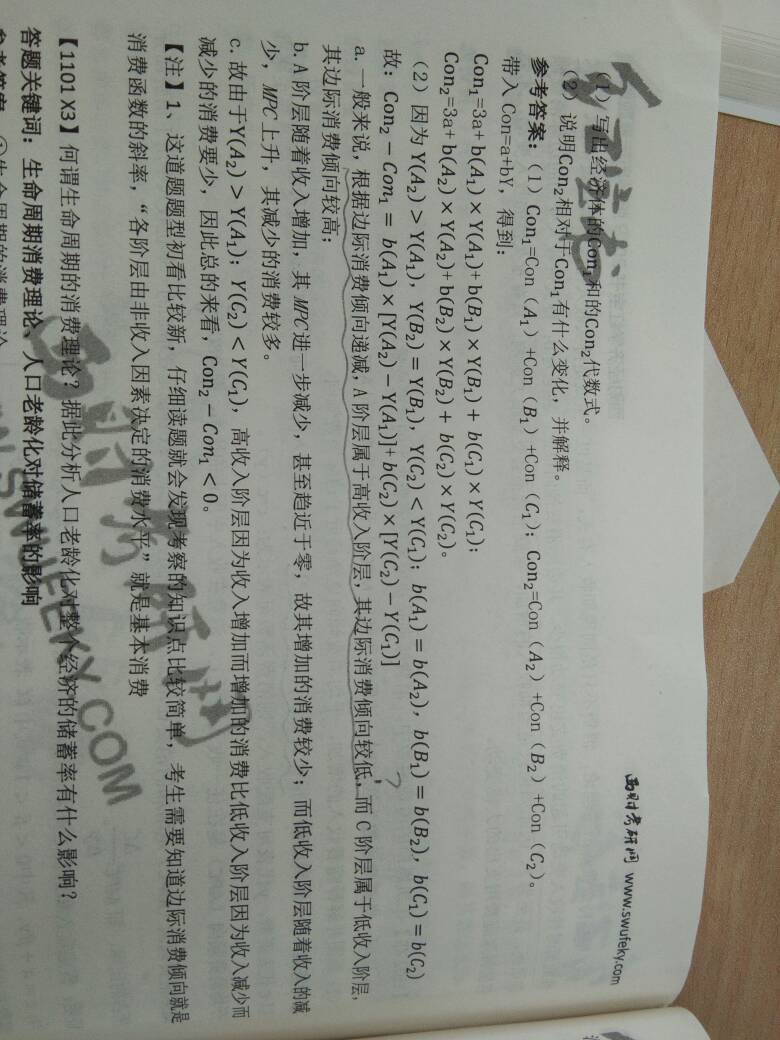 西财考研网 www.swufeky.com
（1）写出经济体的Con₁和的Con₂代数式。
（2）说明Con₂相对于Con₁有什么变化，并解释。
参考答案：（1）Con₁=Con（A₁）+Con（B₁）+Con（C₁）；Con₂=Con（A₂）+Con（B₂）+Con（C₂）。
带入 Con=a+bY，得到：
Con₁=3a+ b(A₁) × Y(A₁)+ b(B₁) × Y(B₁) + b(C₁) × Y(C₁)；
Con₂=3a+ b(A₂) × Y(A₂)+ b(B₂) × Y(B₂) + b(C₂) × Y(C₂)。
（2）因为 Y(A₂) > Y(A₁)，Y(B₂) = Y(B₁)，Y(C₂) < Y(C₁)；b(A₁) = b(A₂)，b(B₁) = b(B₂)，b(C₁) = b(C₂)
故：Con₂ − Con₁ = b(A₁) × [Y(A₂) − Y(A₁)]+ b(C₂) × [Y(C₂) − Y(C₁)]
a. 一般来说，根据边际消费倾向递减，A 阶层属于高收入阶层，其边际消费倾向较低，而 C 阶层属于低收入阶层，
其边际消费倾向较高；
b. A 阶层随着收入增加，其 MPC 进一步减少，甚至趋近于零，故其增加的消费较少；而低收入阶层随着收入的减
少，MPC 上升，其减少的消费较多。
c. 故由于Y(A₂) > Y(A₁)；Y(C₂) < Y(C₁)，高收入阶层因为收入增加而增加的消费比低收入阶层因为收入减少而
减少的消费要少，因此总的来看，Con₂ − Con₁ < 0。
【注】1、这道题题型初看比较新，仔细读题就会发现考察的知识点比较简单，考生需要知道边际消费倾向就是
消费函数的斜率，“各阶层由非收入因素决定的消费水平”就是基本消费
【1101 X3】何谓生命周期的消费理论？据此分析人口老龄化对整个经济的储蓄率有什么影响？
答题关键词：生命周期消费理论、人口老龄化对储蓄率的影响
西财考研网
SWUFEKY.COM